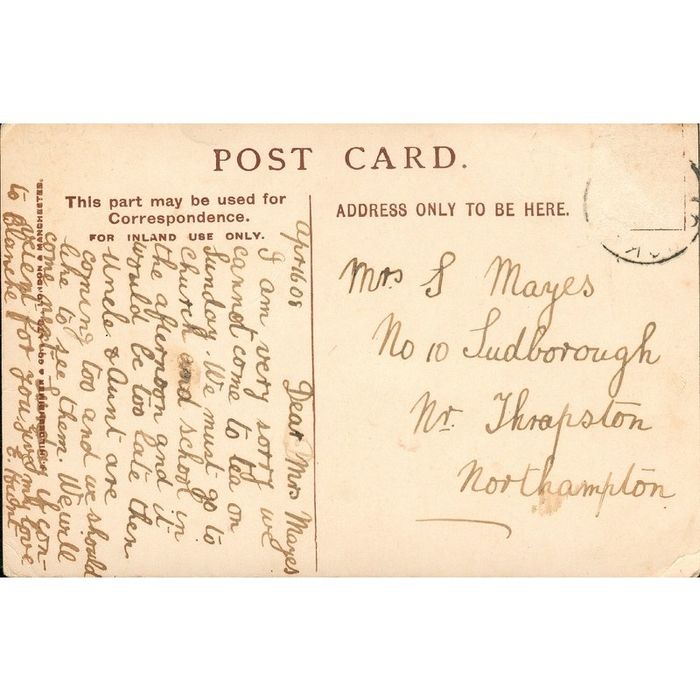 POST CARD.
This part may be used for
Correspondence.
FOR INLAND USE ONLY.
ADDRESS ONLY TO BE HERE.
Apr 16 08
Dear Mrs Mayes
I am very sorry we
cannot come to tea on
Sunday. We must go to
church and school in
the afternoon and it
would be too late then
Uncle & Aunt are
coming too and we should
like to see them. We will
come if con-
vient for you, give my love
to Blanche E. Hunt
LONDON & MANCHESTER.
Mrs S Mayes
No 10 Sudborough
Nr. Thrapston
Northampton